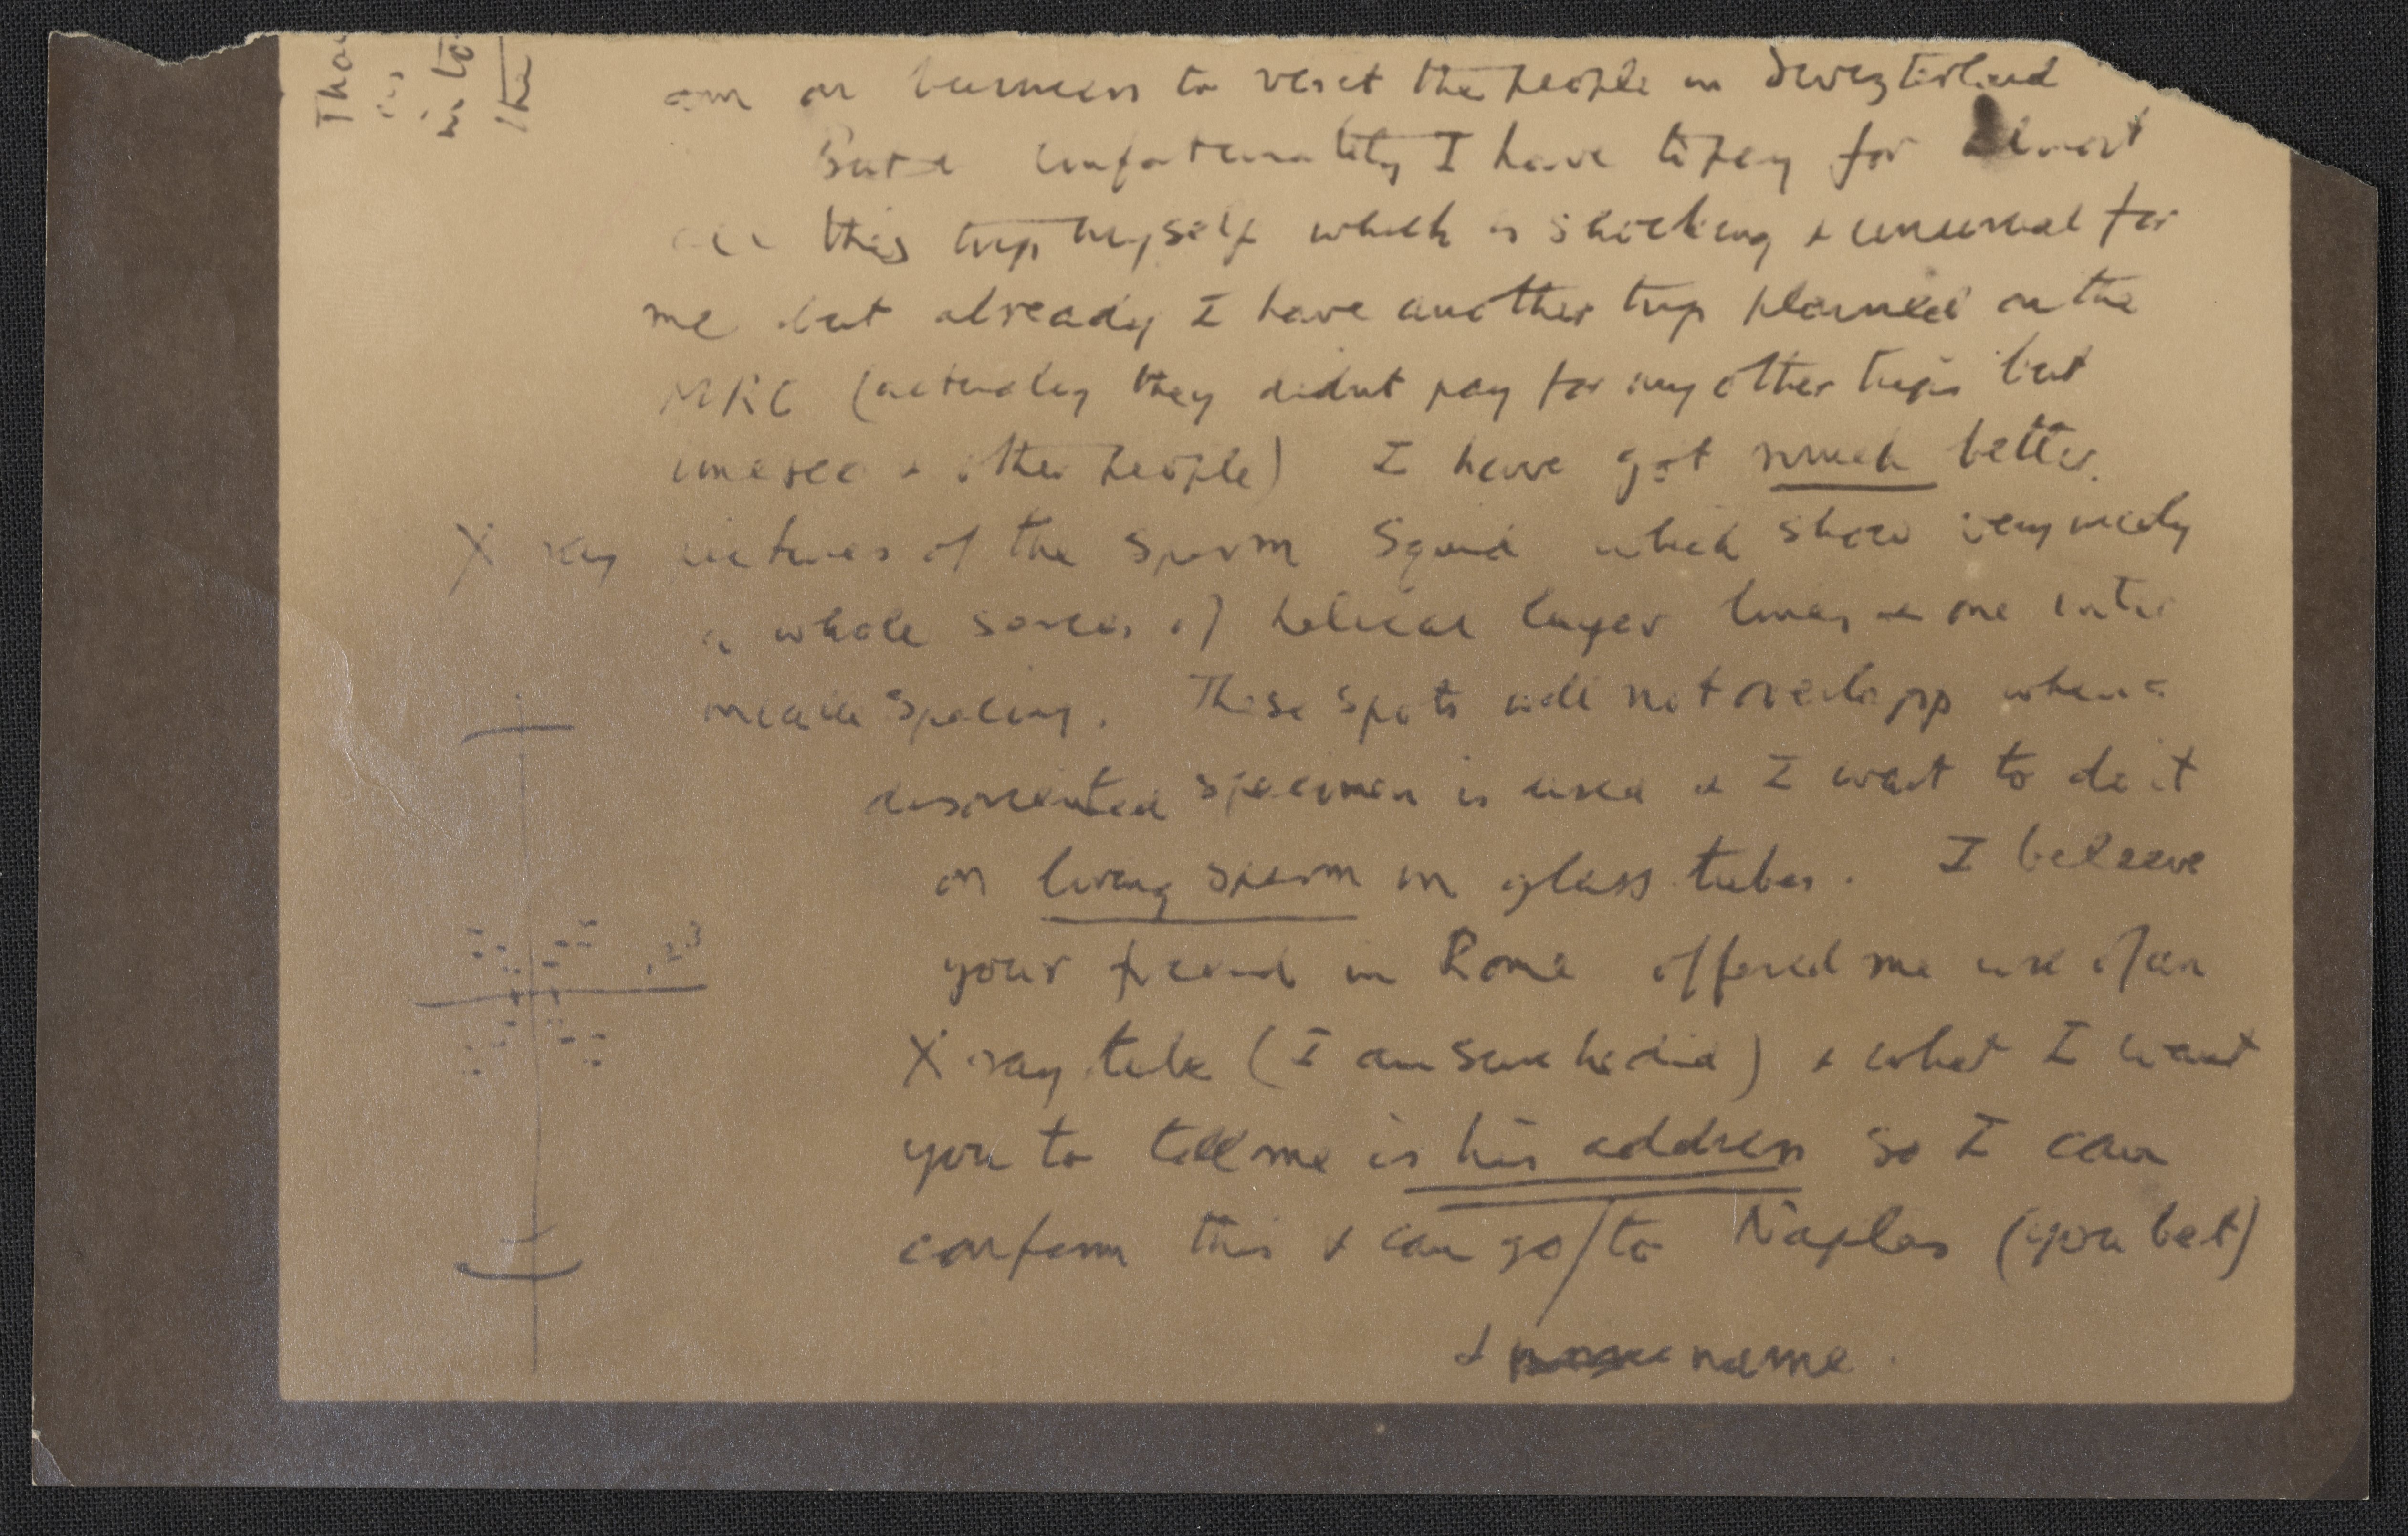 am on business to visit the people in Swizterland
But unfortunately I have to pay for almost
all this trip myself which is shocking + unusual for
me but already I have another trip planned on the
MRC (actually they didnt pay for my other trips but
unesco + other people) I have got much better
X ray pictures of the sperm Squid which show very nicely
a whole series of helical layer lines + one inter
mediate spacing. These spots will not overlapp when a
disoriented specimen is used + I want to do it
on living sperm in glass tubes. I beleeve
your friend in Rome offered me use of an
X ray tube (I am sure he did) + what I want
you to tell me is his address so I can
confirm this + can go to Naples (you bet)
+ name
Thou
in to
the
1 2 3